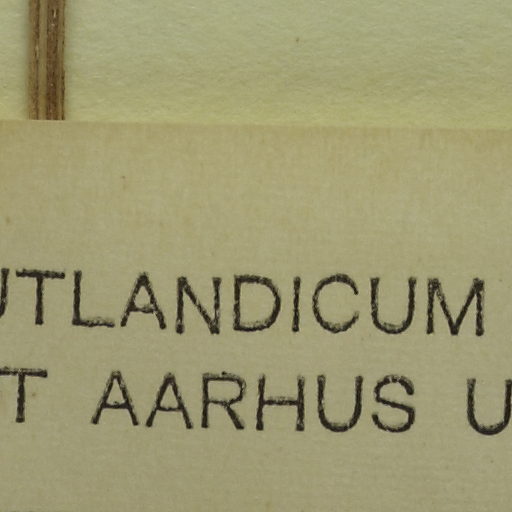 UTLANDICUM
T AARHUS U